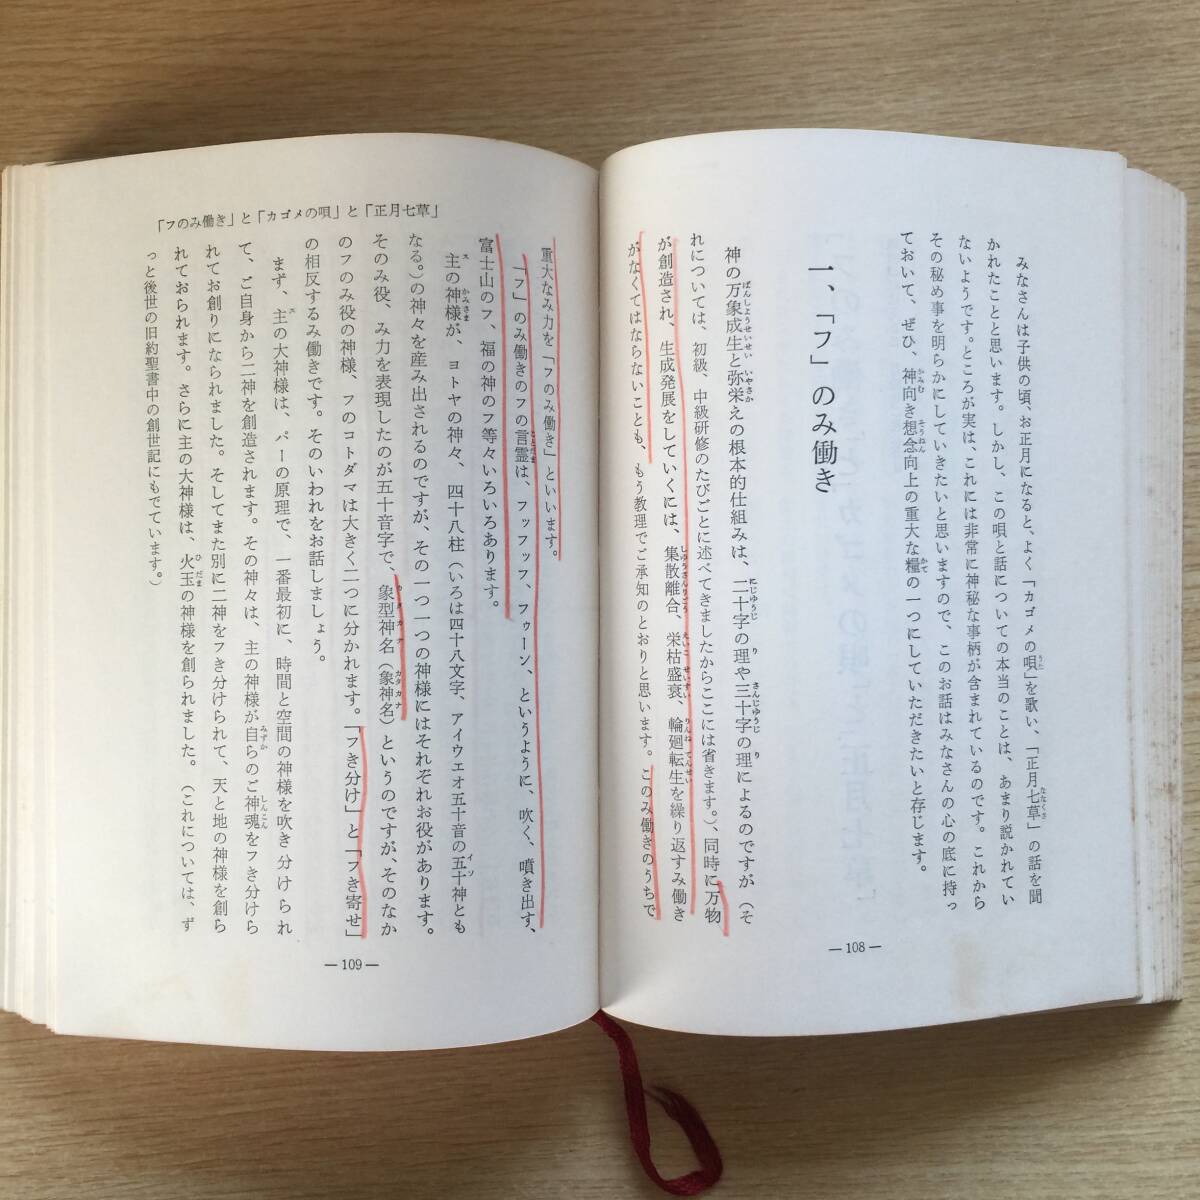 みなさんは子供の頃、お正月になると、よく「カゴメの唄」を歌い、「正月七草」の話を聞
かれたことと思います。しかし、この唄と話についての本当のことは、あまり説かれてい
ないようです。ところが実は、これには非常に神秘な事柄が含まれているのです。これから
その秘め事を明らかにしていきたいと思いますので、このお話はみなさんの心の底に持っ
ておいて、ぜひ、神向き想念向上の重大な糧の一つにしていただきたいと存じます。
一、「フ」のみ働き
神の万象成生と弥栄えの根本的仕組みは、二十字の理や三十字の理によるのですが（そ
れについては、初級、中級研修のたびごとに述べてきましたからここには省きます。）、同時に万物
が創造され、生成発展をしていくには、集散離合、栄枯盛衰、輪廻転生を繰り返すみ働き
がなくてはならないことも、もう教理でご承知のとおりと思います。このみ働きのうちで
— 108 —
「フのみ働き」と「カゴメの唄」と「正月七草」
重大なみ力を「フのみ働き」といいます。
「フ」のみ働きのフの言霊は、フッフッフ、フゥーン、というように、吹く、噴き出す、
富士山のフ、福の神のフ等々いろいろあります。
主の神様が、ヨトヤの神々、四十八柱（いろは四十八文字、アイウエオ五十音の五十神とも
なる。）の神々を産み出されるのですが、その一つ一つの神様にはそれぞれお役があります。
そのみ役、み力を表現したのが五十音字で、象型神名（象神名）というのですが、そのなか
のフのみ役の神様、フのコトダマは大きく二つに分かれます。「フき分け」と「フき寄せ」
の相反するみ働きです。そのいわれをお話しましょう。
まず、主の大神様は、パーの原理で、一番最初に、時間と空間の神様を吹き分けられ
て、ご自身から二神を創造されます。その神々は、主の神様が自らのご神魂をフき分けら
れてお創りになられました。そしてまた別に二神をフき分けられて、天と地の神様を創ら
れておられます。さらに主の大神様は、火玉の神様を創られました。（これについては、ず
っと後世の旧約聖書中の創世記にもでています。）
— 109 —